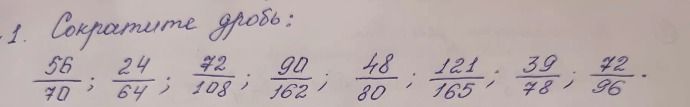 1. Сократите дробь:
56/70; 24/64; 72/108; 90/162; 48/80; 121/165; 39/78; 72/96.